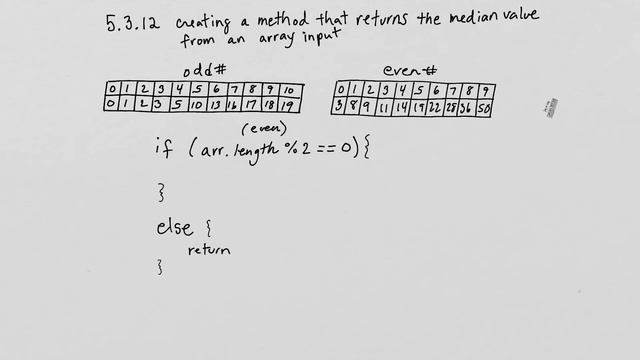 5.3.12 creating a method that returns the median value
from an array input
odd# even#
0 1 2 3 4 5 6 7 8 9 10
0 1 2 3 5 10 13 16 17 18 19
0 1 2 3 4 5 6 7 8 9
3 8 9 11 14 19 22 28 36 50
(even)
if (arr.length %2 == 0) {
}
else {
return
}